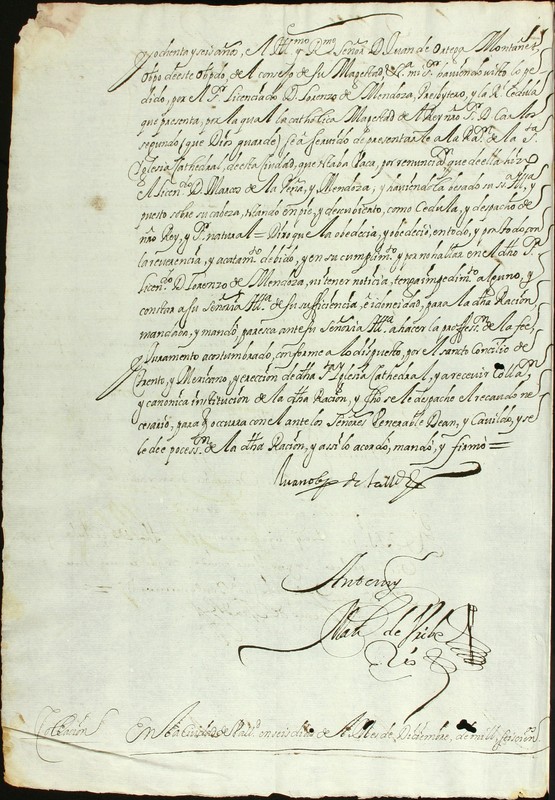 y ochenta y seis años, El Ill.mo y R.mo Señor D. Juan de Ortega Montañes,
Obpo de este Obpdo, del Consejo de su Magestad &.a mi S.r haviendo visto lo pe
dido, por el S.r Licenciado D. Lorenzo de Mendoza, Presbytero, y la R.l Cedula
que presenta, por la qual la catholica Magestad del Rey nro S.r D. Carlos
segundo (que Dios guarde) se à servido de presentarle a la Raz.n de la S.ta
Iglesia Cathedral, de esta Ciudad, que estaba Vaca, por renunciaz.on que de ella hizo
el Licen.do D. Marcos de la Peña, y Mendoza, y haviendola besado su S.a Ill.ma, y
puesto sobre su cabeza, estando en pie, y descubierto, como Cedula, y despacho de
nro Rey, y S.r natural = Dixo que la obedecia, y obedeciò, en todo, y por todo con
la reverencia, y acatam.to debido, y en su cumplim.to y por no hallar en el dho S.r
Licen.do D. Lorenzo de Mendoza, ni tener noticia, tenga impedim.to alguno, y
constar a su Señoria Ill.ma de su sufficiencia, è idoneidad, para la dha Racion,
mandaba, y mandò paresca ante su Señoria Ill.ma a hacer la profess.on de la fee,
y Juramento acostumbrado, conforme a lo dispuesto, por el Sancto Concilio de
Trento, y Mexicano, y ereccion de dha S.ta Iglesia Cathedral, y a recevir Colla.on
y canonica institucion de la dha Racion, y fho se le despache el recaudo ne
cesario, para q occurra con el ante los Señores Venerable Dean, y Cavildo, y se
le dee poces.on de la dha Racion, y assi lo acordò, mandò, y firmò =
Juan obpo de Valld
Ante my
de Uribe
En la Ciudad de Vall.d en seis dias, del Mes de Diciembre, de mill, seiscien